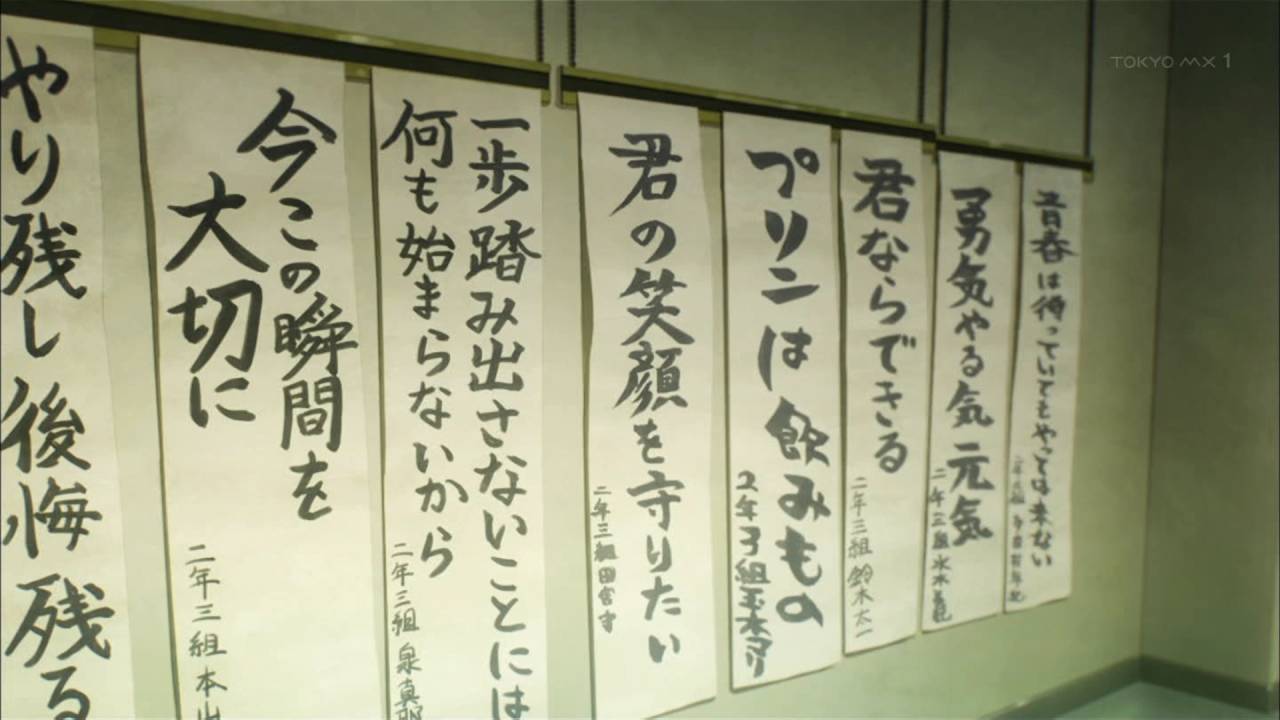 TOKYO MX 1
青春は待っていてもやっては来ない
勇気やる気元気
二年三組水木
君ならできる
二年三組 鈴木太一
プリンは飲みもの
2年3組玉木マリ
君の笑顔を守りたい
二年三組田宮守
一歩踏み出さないことには
何も始まらないから
二年三組 泉真
今この瞬間を
大切に
二年三組 本
やり残し後悔残る